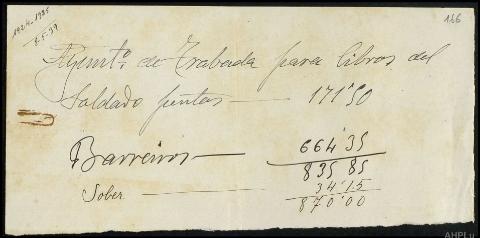 1924-1925
166
8-5-99
Ayunt.º de Trabada para libros del
Soldado pentas — 171'50
Barreiros — 664'35
835 85
Sober — 34'15
870'00
AHPLu